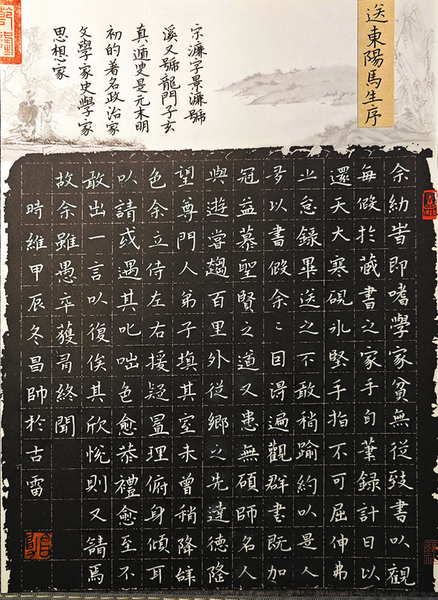 送東陽馬生序
宗濂字景濂號
溪又號龍門子玄
真遁叟是元末明
初的著名政治家
文學家史學家
思想家
余幼旹即嗜學家貧無從致書以觀
每假於藏書之家手自筆録計日以
還天大寒硯冰堅手指不可屈伸弗
之怠録畢送之不敢稍踰約以是人
多以書假余〻因得遍觀群書既加
冠益慕聖賢之道又患無碩師名人
與遊嘗趨百里外從鄉之先達德隆
望尊門人弟子填其室未曾稍降辞
色余立侍左右援疑置理俯身傾耳
以請或遇其叱咄色愈恭禮愈至不
敢出一言以復俟其欣悅則又請焉
故余雖愚卒獲有終聞
時維甲辰冬昌帥於古雷